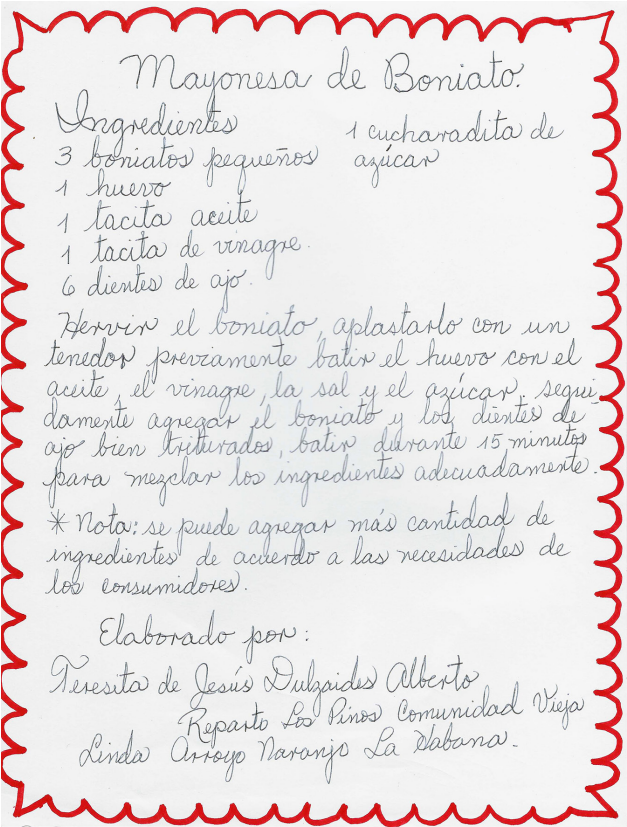 Mayonesa de Boniato.
Ingredientes
3 boniatos pequeños
1 huevo
1 tacita aceite
1 tacita de vinagre.
6 dientes de ajo.
1 cucharadita de
azúcar
Hervir el boniato, aplastarlo con un
tenedor previamente batir el huevo con el
aceite, el vinagre, la sal y el azúcar, segui
damente agregar el boniato y los dientes de
ajo bien triturados, batir durante 15 minutos
para mezclar los ingredientes adecuadamente.
* Nota: se puede agregar más cantidad de
ingredientes de acuerdo a las necesidades de
los consumidores.
Elaborado por:
Teresita de Jesús Dulzaides Alberto
Reparto Los Pinos Comunidad Vieja
Linda Arroyo Naranjo La Habana.